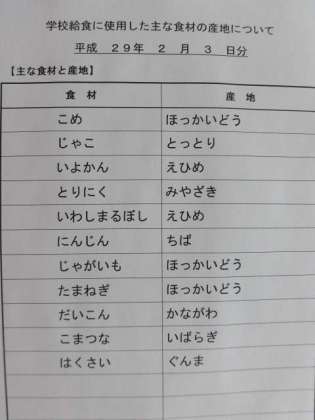 学校給食に使用した主な食材の産地について
平成 29年 2 月 3 日分
【主な食材と産地】
食 材 産 地
こめ ほっかいどう
じゃこ とっとり
いよかん えひめ
とりにく みやざき
いわしまるぼし えひめ
にんじん ちば
じゃがいも ほっかいどう
たまねぎ ほっかいどう
だいこん かながわ
こまつな いばらぎ
はくさい ぐんま